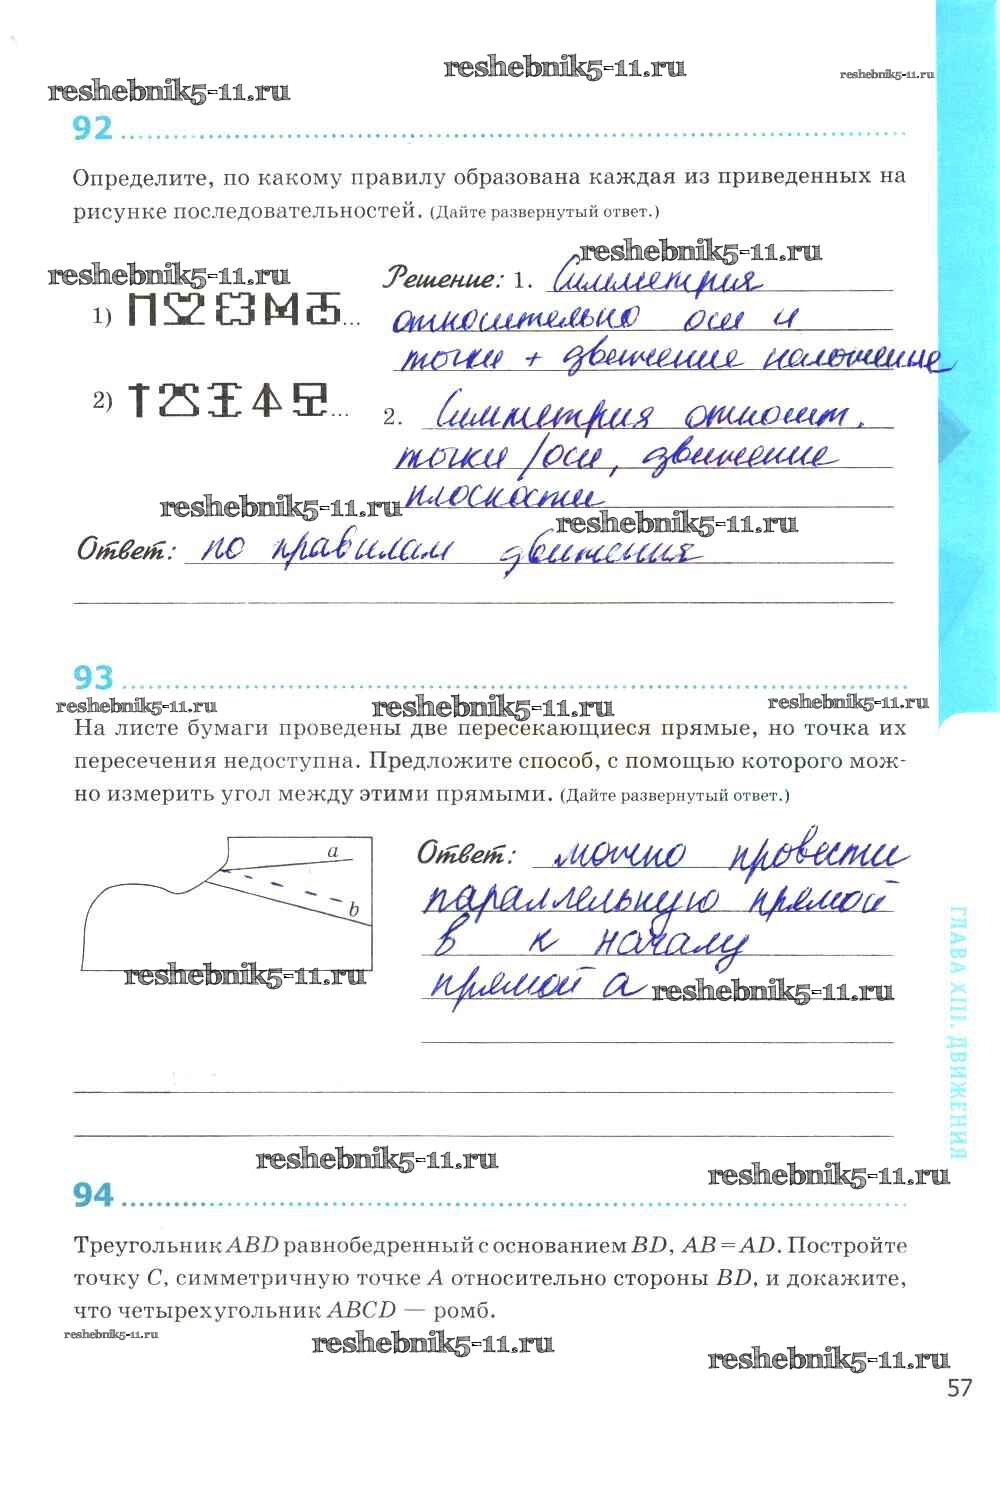 reshebnik5-11.ru
reshebnik5-11.ru
reshebnik5-11.ru
92
Определите, по какому правилу образована каждая из приведенных на
рисунке последовательностей. (Дайте развернутый ответ.)
reshebnik5-11.ru
reshebnik5-11.ru
Решение: 1. Симметрия
1) ...
относительно оси и
точки + движение наложение
2) ...
2. Симметрия относит.
точки / оси, движение
плоскости
reshebnik5-11.ru
reshebnik5-11.ru
Ответ: по правилам движения
93
reshebnik5-11.ru
reshebnik5-11.ru
reshebnik5-11.ru
На листе бумаги проведены две пересекающиеся прямые, но точка их
пересечения недоступна. Предложите способ, с помощью которого мож-
но измерить угол между этими прямыми. (Дайте развернутый ответ.)
a
b
Ответ: можно провести
параллельную прямой
в к началу
прямой а
reshebnik5-11.ru
reshebnik5-11.ru
ГЛАВА XIII. ДВИЖЕНИЯ
reshebnik5-11.ru
reshebnik5-11.ru
94
Треугольник ABD равнобедренный с основанием BD, AB = AD. Постройте
точку C, симметричную точке A относительно стороны BD, и докажите,
что четырехугольник ABCD — ромб.
reshebnik5-11.ru
reshebnik5-11.ru
reshebnik5-11.ru
57